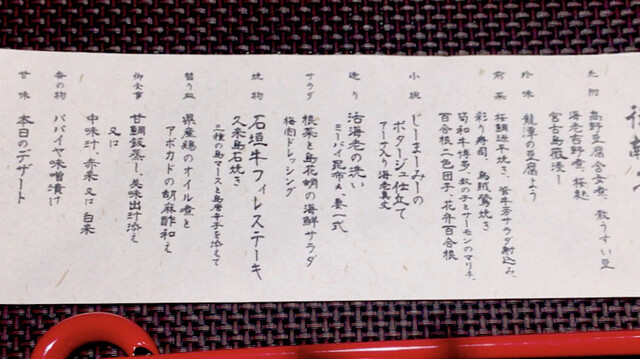 先附
高野豆腐含め煮、敷うすい豆
海老吉野煮、桜麩
宮古島薇浸し
珍味
龍潭の豆腐よう
前菜
桜鯛逆平焼き、管牛蒡サラダ射込み、
彩り寿司、烏賊鶯焼き
筍和牛博多、数の子とサーモンのマリネ、
百合根二色団子、花弁百合根
小椀
じーまーみーの
ポタージュ仕立て
アーサ入り海老真丈
造り
活海老の洗い
ミーバイ昆布〆、妻一式
サラダ
根菜と島花蛸の海鮮サラダ
梅肉ドレッシング
焼物
石垣牛フィレステーキ
久米島石焼き
三種の島マースと島唐辛子を添えて
替り皿
県産鶏のオイル煮と
アボカドの胡麻酢和え
御食事
甘鯛飯蒸し、美味出汁添え
又は
中味汁、赤米 又は 白米
香の物
パパイヤ味噌漬け
甘味
本日のデザート